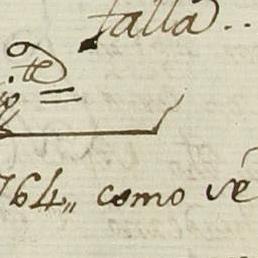 falla..
te
764,, como ve